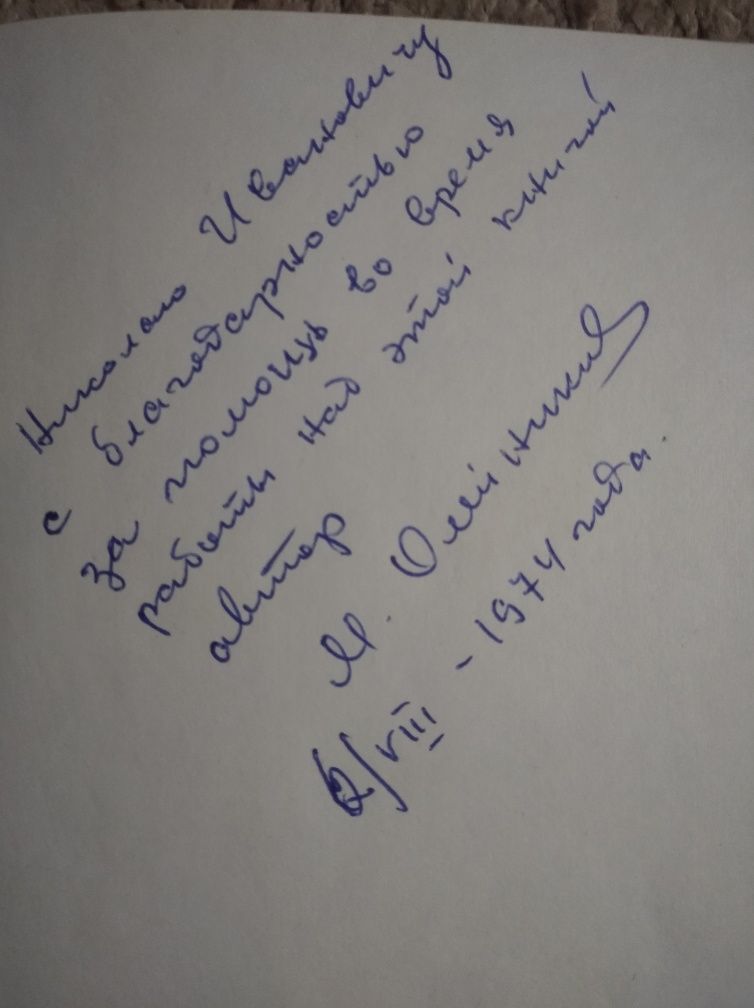 Николаю Ивановичу
с благодарностью
за помощь во время
работы над этой книгой
автор
М. Олейников
/VIII - 1974 года.